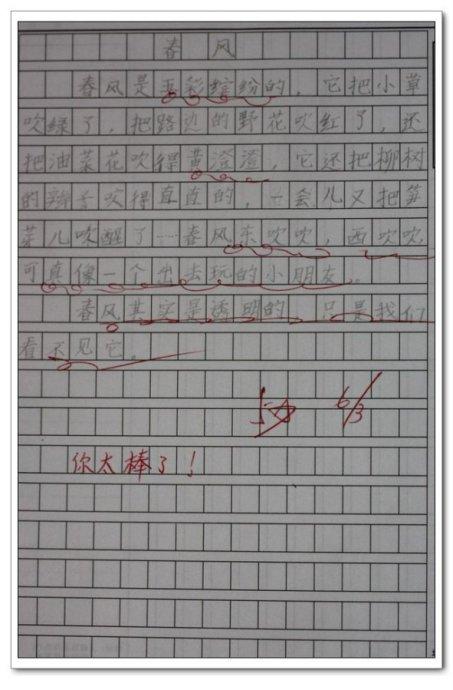 春风
春风是五彩缤纷的，它把小草
吹绿了，把路边的野花吹红了，还
把油菜花吹得黄澄澄，它还把柳树
的辫子吹得直直的，一会儿又把笋
芽儿吹醒了……春风东吹吹，西吹吹，
可真像一个出去玩的小朋友。
春风其实是透明的，只是我们
看不见它。
6/3
你太棒了！